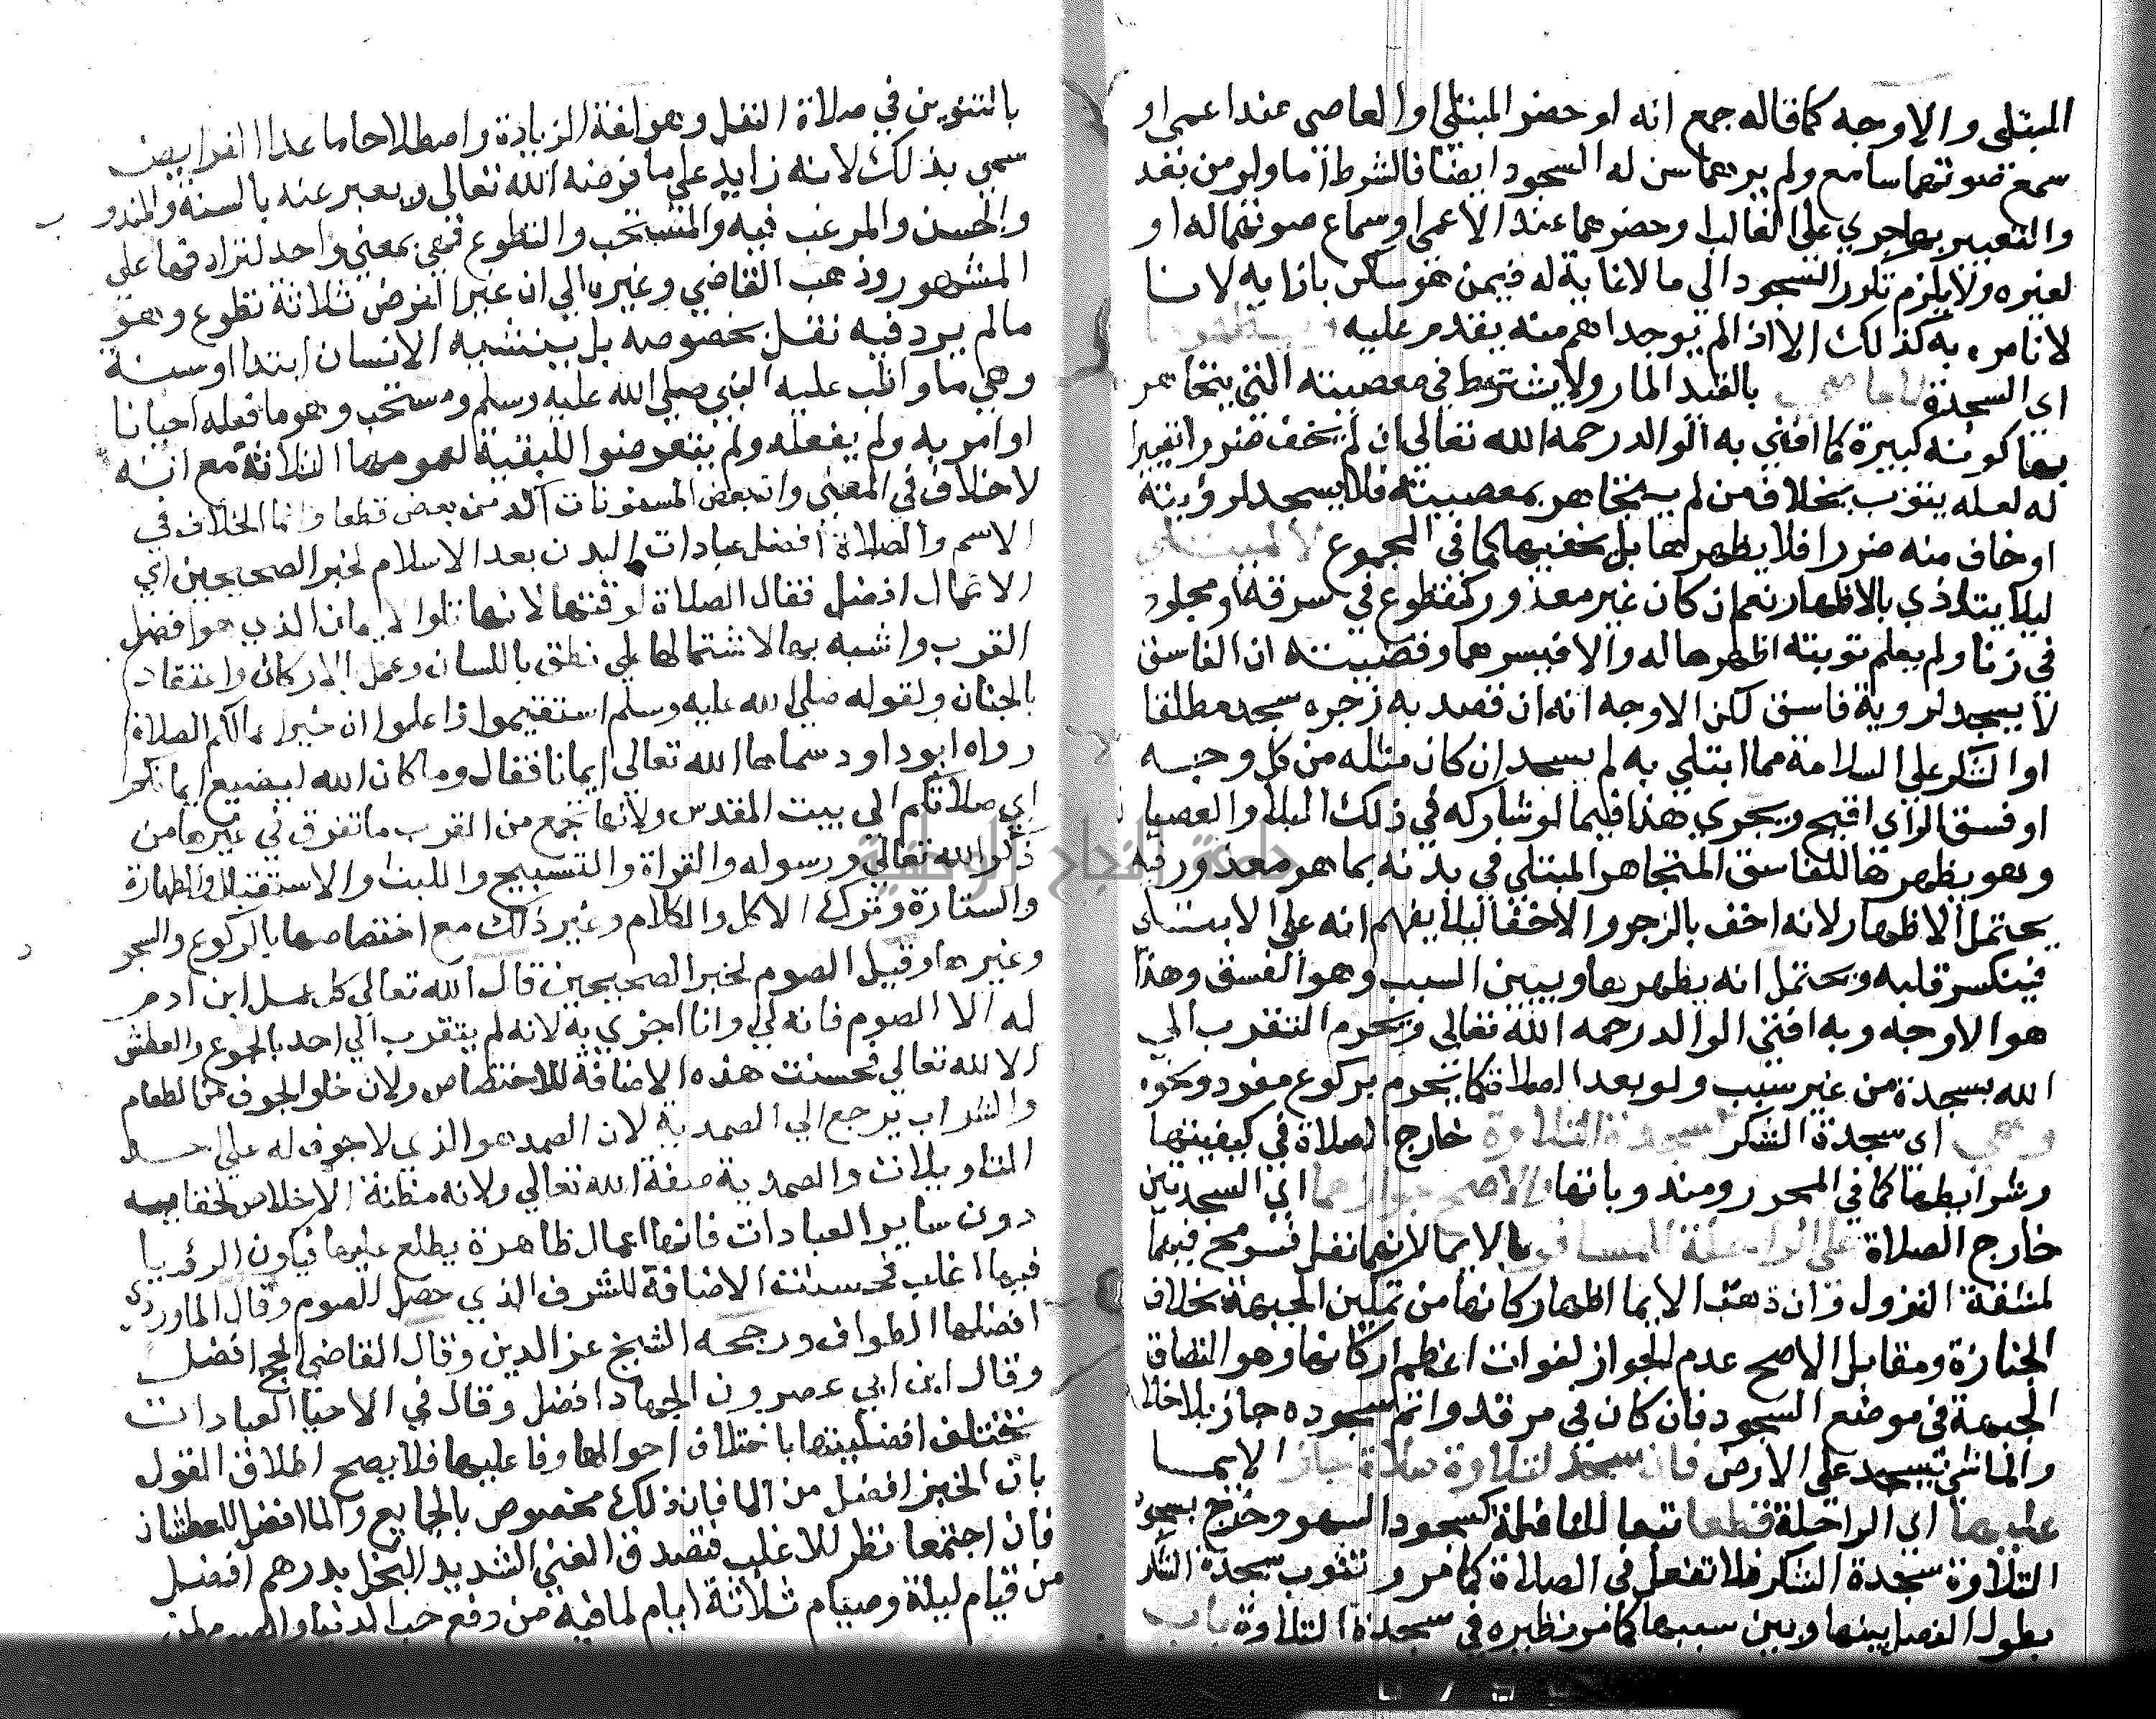 المبتلى والاوجه كما قاله جمع انه لو حضر المبتلى او العاصي عند اعمى او
سمع صوتهما سامع ولم يرهما سن له السجود ايضا فالشرط اما ولو من بعد
والتعبير بها جري على الغالب او حضرهما عند الاعمى او سماع صوتهما له او
لغيره ولا يلزم تكرر السجود الى ما لا غاية له فيمن هو ساكن بازايه لانا
لا نامره به كذلك الا اذا لم يوجد اهم منه يقدم عليه ويظهرها
اي السجدة للعاصي بالقيد المار ولا يشترط في معصيته التي يتجاهر
بها كونه كبيرة كما افتى به الوالد رحمه الله تعالى ان لم يخف ضررا تعييرا
له لعله يتوب بخلاف من لم يتجاهر بمعصيته فلا يسجد لرؤيته
او خاف منه ضررا فلا يظهرها بل يخفيها كما في المجموع لا للمبتلي
ليلا يتاذي بالاظهار نعم ان كان غير معذور كمقطوع في سرقة او مجلود
في زنا ولم يعلم توبته اظهرها له والا فيسرها وقضيته ان الفاسق
لا يسجد لروية فاسق لكن الاوجه انه ان قصد به زجره سجد مطلقا
او الشكر على السلامة مما ابتلي به لم يسجد ان كان مثله من كل وجه
او فسق الراي اقبح ويجري هذا فيما لو شاركه في ذلك البلا والعصيان
وهو يظهرها للفاسق المتجاهر المبتلي في بدنه بما هو معذور فيه
يحتمل الاظهار لانه اخف بالزجر والاخفا ليلا يفهم انه على الابتلا
فينكسر قلبه ويحتمل انه يظهرها ويبين السبب وهو الفسق وهذا
هو الاوجه وبه افتى الوالد رحمه الله تعالى ويحرم التقرب الى
الله بسجدة من غير سبب ولو بعد الصلاة كما يحرم بركوع مفرد ونحوه
وهي اي سجدة الشكر كسجدة التلاوة خارج الصلاة في كيفيتها
وشرايطها كما في المحرر ومندوباتها والاصح جوازهما اي السجدتين
خارج الصلاة على الراحلة للمسافر بالايما لانهما نفل فسومح فيهما
لمشقة النزول وان ذهب الايما اظهار كانها من تمكين الجبهة بخلاف
الجنازة ومقابل الاصح عدم الجواز لفوات اعظم اركانها وهو التصاق
الجبهة في موضع السجود فان كان في مرقد واتم سجوده جاز بلا خلاف
والماشي يسجد على الارض فان سجد لتلاوة صلاة جاز الايما
عليها اي الراحلة قطعا تبعا للنافلة كسجود السهو وخرج بسجود
التلاوة سجدة الشكر فلا تفعل في الصلاة كما مر وتفوت سجدة الشكر
بطول الفصل بينها وبين سببها كما مر نظيره في سجدة التلاوة باب
بالتنوين في صلاة النفل وهو لغة الزيادة واصطلاحا ما عدا الفرايض
سمي بذلك لانه زايد على ما فرضه الله تعالى ويعبر عنه بالسنة والمندوب
والحسن والمرغب فيه والمستحب والتطوع فهي بمعنى واحد لترادفها على
المشهور وذهب القاضي وغيره الى ان غير الفرض ثلاثة تطوع وهو
ما لم يرد فيه نقل بخصوصه بل ينشيه الانسان ابتدا وسنة
وهي ما واظب عليه النبي صلى الله عليه وسلم ومستحب وهو ما فعله احيانا
او امر به ولم يفعله ولم يتعرضوا للبقية لعمومها الثلاثة مع انه
لا خلاف في المعنى وان بعض المسنونات آكد من بعض قطعا وانما الخلاف في
الاسم والصلاة افضل عبادات البدن بعد الاسلام لخبر الصحيحين اي
الاعمال افضل فقال الصلاة لوقتها لانها تلوا الايمان الذي هو افضل
القرب واشبه بها لاشتمالها على نطق باللسان وعمل بالاركان واعتقاد
بالجنان ولقوله صلى الله عليه وسلم استقيموا واعلموا ان خير اعمالكم الصلاة
رواه ابو داود سماها الله تعالى ايمانا فقال وما كان الله ليضيع ايمانكم
اي صلاتكم الى بيت المقدس ولانها تجمع من القرب ما تفرق في غيرها من
ذكر الله تعالى ورسوله والقراة والتسبيح واللبث والاستقبال والطهارة
والستارة وترك الاكل والكلام وغير ذلك مع اختصاصها بالركوع والسجود
وغيرها وقيل الصوم لخبر الصحيحين قال الله تعالى كل عمل ابن ادم
له الا الصوم فانه لي وانا اجزي به لانه لم يتقرب الى احد بالجوع والعطش
الا لله تعالى فحسنت هذه الاضافة للاختصاص ولان خلو الجوف من الطعام
والشراب يرجع الى الصمدية لان الصمد هو الذي لا جوف له على احد
التاويلات والصمدية صفة الله تعالى ولانه مظنة الاخلاص لخفايه
دون ساير العبادات فانها اعمال ظاهرة يطلع عليها فيكون الرؤيا
فيها اغلب فحسنت الاضافة للشرف الذي حصل للصوم وقال الماوردي
افضلها الطواف ورجحه الشيخ عز الدين وقال القاضي الحج افضل
وقال ابن ابي عصرون الجهاد افضل وقال في الاحيا العبادات
تختلف افضليتها باختلاف احوالها وفاعليها فلا يصح اطلاق القول
بان الخبز افضل من الما فان ذلك مخصوص بالجايع والما افضل للعطشان
فان اجتمعا نظر للاغلب فتصدق الغني الشديد البخل بدرهم افضل
من قيام ليلة وصيام ثلاثة ايام لما فيه من دفع حب الدنيا والصوم